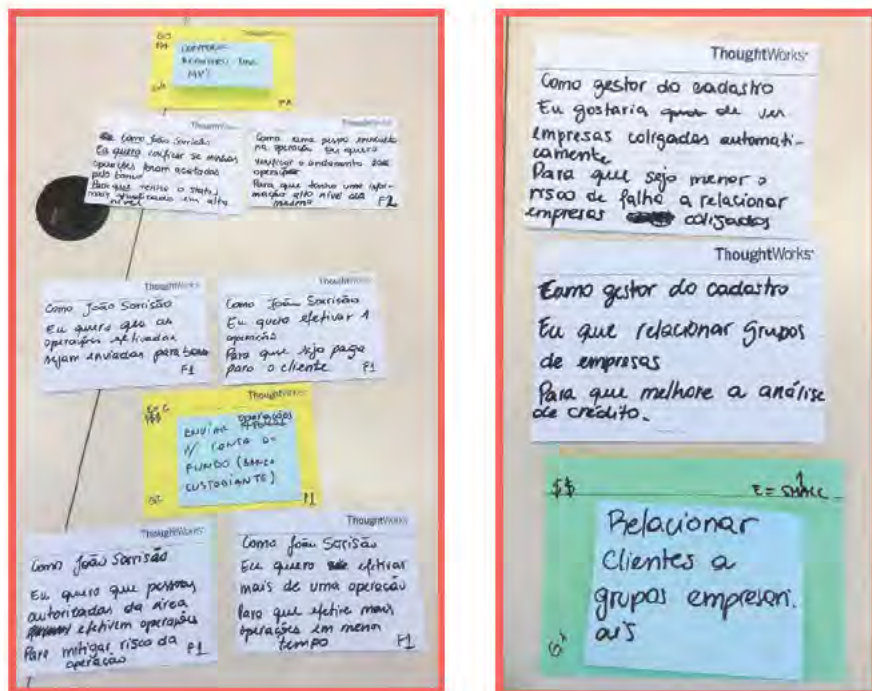 ThoughtWorks
Como João Sorrisão
Eu quero verificar se minhas
operações foram aceitas
pelo banco
Para que
mais atualizado em alto
nível
ThoughtWorks
Como uma pessoa envolvida
na operação Eu quero
verificar o andamento
operação
Para que tenha uma infor-
mação alto nível da
mesma
ThoughtWorks
Como João Sorrisão
Eu quero que as
operações efetivadas
sejam enviadas para
F1
ThoughtWorks
Como João Sorrisão
Eu quero efetivar 1
operação
Para que seja paga
para o cliente F1
ThoughtWorks
$$$
operações
ENVIAR
P/ CONTA DO
FUNDO (BANCO
CUSTODIANTE)
F1
ThoughtWorks
Como João Sorrisão
Eu quero que pessoas
autorizadas da área
efetivem operações
Para mitigar risco da
operação F1
ThoughtWorks
Como João Sorrisão
Eu quero efetivar
mais de uma operação
Para que efetive mais
operações em menos
tempo F1
ThoughtWorks
Como gestor do cadastro
Eu gostaria de ver
empresas coligadas automati-
camente
Para que seja menor o
risco de falha a relacionar
empresas coligadas
ThoughtWorks
Como gestor do cadastro
Eu que relacionar grupos
de empresas
Para que melhore a análise
de crédito.
$$ E = SMALL
Relacionar
Clientes a
grupos empresari.
ais